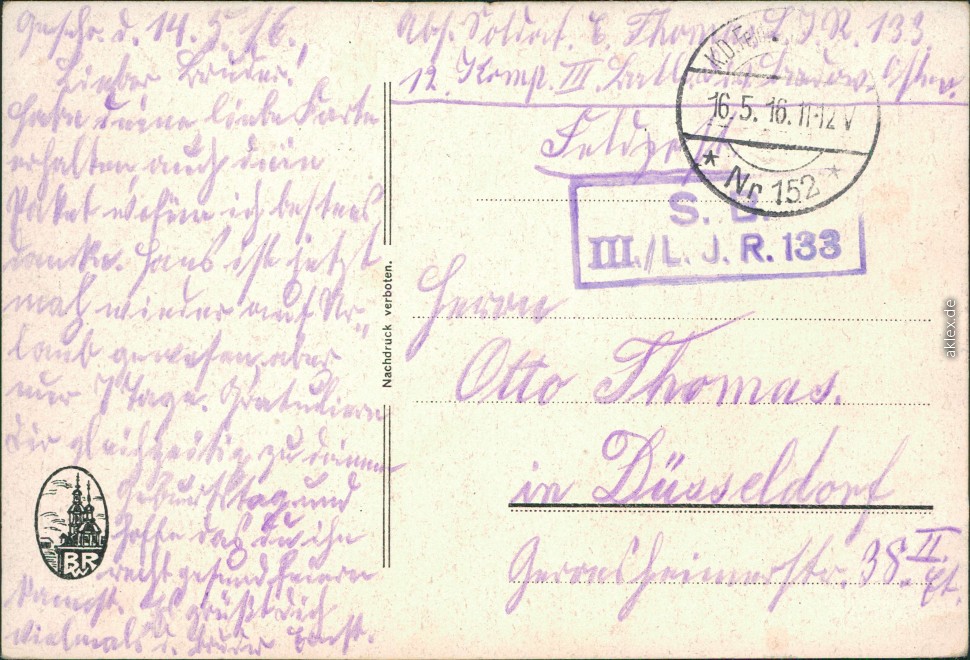 Geschr. d. 14. 5. 16.
Lieber Bruder!
Habe deine liebe Karte
erhalten, auch dein
Paket wofür ich bestens
danke. Hans ist jetzt
mal wieder auf Ur-
laub gewesen, aber
nur 7 Tage. Gratuliere
Dir gleichzeitig zu deinem
Geburtstag und
hoffe das du ihn
recht gesund feiern
kannst. Es grüßt dich
vielmals d. Bruder Ernst.
Abs. Soldat E. Thomas L. J. R. 133
12. Komp. III. Batl. Osten.
Feldpost
K.D. Feld
16.5.16. 11-12 V
* Nr. 152 *
S. B.
III./L. J. R. 133
Nachdruck verboten.
Herrn
Otto Thomas.
in Düsseldorf
Gerresheimerstr. 38. II. Et.
BR
W
aklex.de